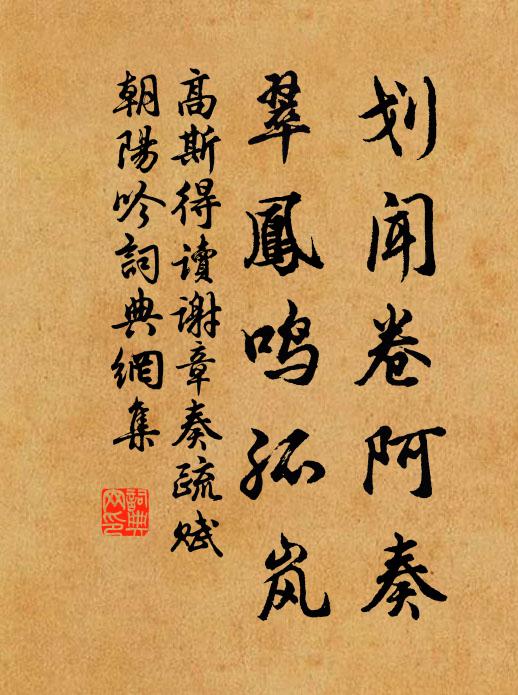 划闻卷阿奏
翠鳳鸣孤岚
高斯得读謝章奏疏赋
朝陽吟詞典網集
詞典网印